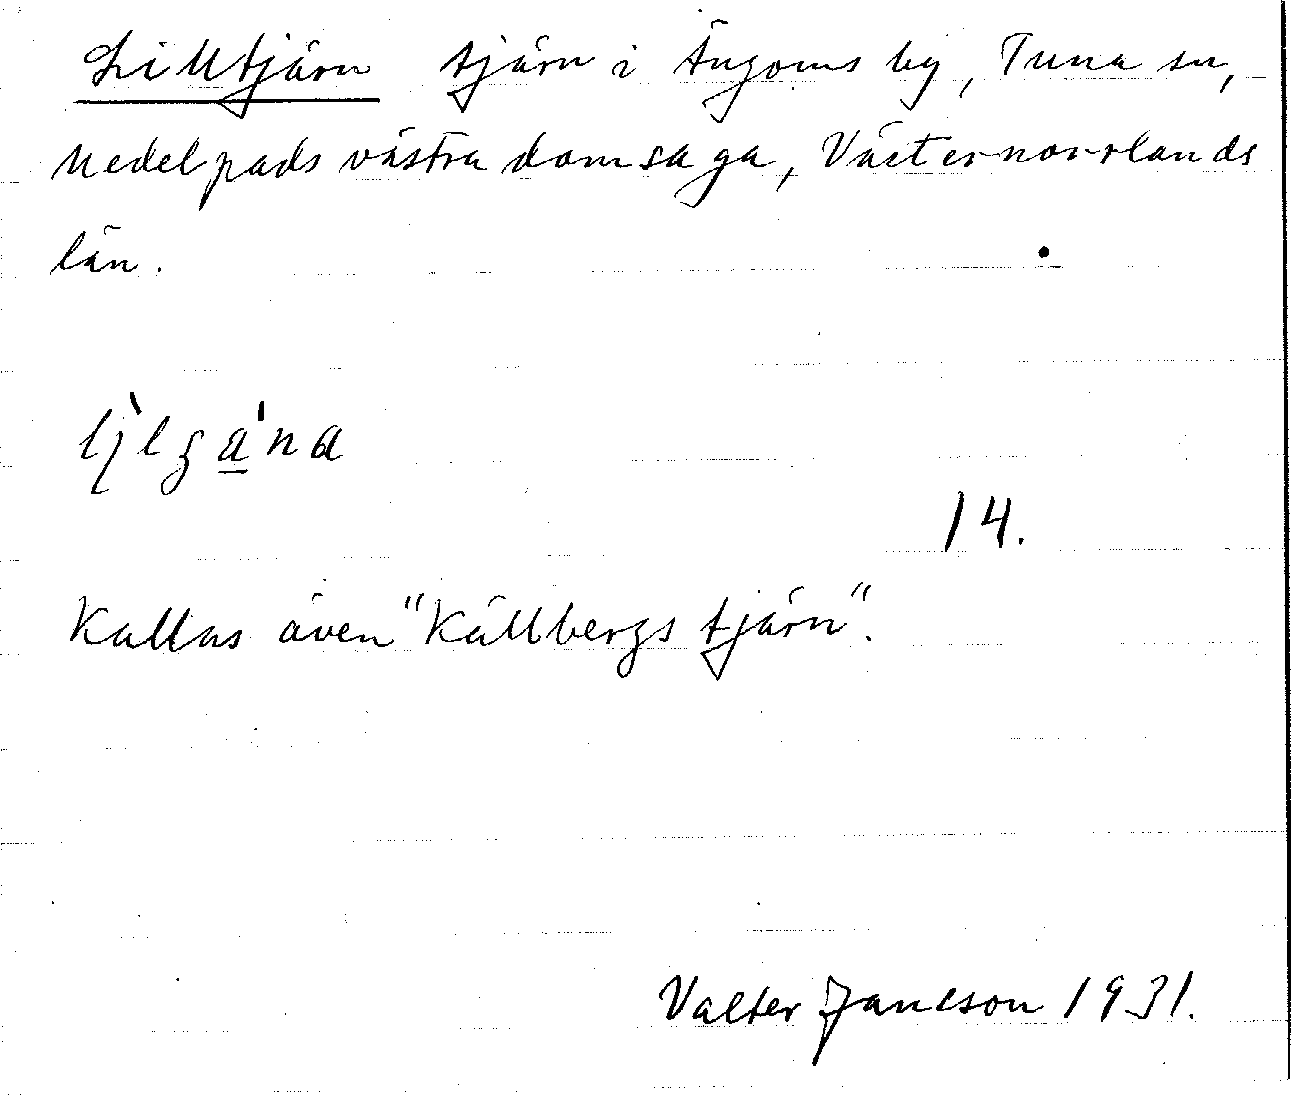 Lilltjärn tjärn i Ängoms by, Tuna sn,
Medelpads västra domsaga, Västernorrlands
län.
14.
Kallas även "Källbergstjärn".
Valter Jansson 1931.